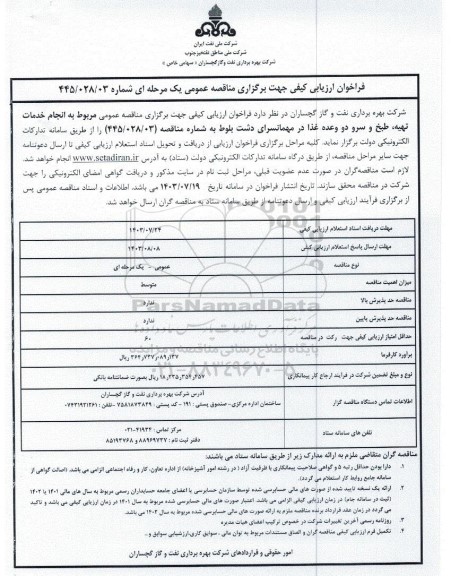 شرکت ملی نفت ایران
شرکت ملی مناطق نفتخیز جنوب
شرکت بهره برداری نفت و گاز گچساران « سهامی خاص »
فراخوان ارزیابی کیفی جهت برگزاری مناقصه عمومی یک مرحله ای شماره ۴۴۵/۰۲۸/۰۳
شرکت بهره برداری نفت و گاز گچساران در نظر دارد فراخوان ارزیابی کیفی جهت برگزاری مناقصه عمومی مربوط به انجام خدمات
تهیه، طبخ و سرو دو وعده غذا در مهمانسرای دشت بلوط به شماره مناقصه (۴۴۵/۰۲۸/۰۳) را از طریق سامانه تدارکات
الکترونیکی دولت برگزار نماید. کلیه مراحل برگزاری فراخوان ارزیابی از دریافت و تحویل اسناد استعلام ارزیابی کیفی تا ارسال دعوتنامه
جهت سایر مراحل مناقصه، از طریق درگاه سامانه تدارکات الکترونیکی دولت (ستاد) به آدرس www.setadiran.ir انجام خواهد شد.
لازم است مناقصه‌گران در صورت عدم عضویت قبلی، مراحل ثبت نام در سایت مذکور و دریافت گواهی امضای الکترونیکی را جهت
شرکت در مناقصه محقق سازند. تاریخ انتشار فراخوان در سامانه تاریخ ۱۴۰۳/۰۷/۱۹ می باشد. اطلاعات و اسناد مناقصه عمومی پس
از برگزاری فرآیند ارزیابی کیفی و ارسال دعوتنامه از طریق سامانه ستاد به مناقصه گران ارسال خواهد شد.
مهلت دریافت اسناد استعلام ارزیابی کیفی ۱۴۰۳/۰۷/۲۴
مهلت ارسال پاسخ استعلام ارزیابی کیفی ۱۴۰۳/۰۸/۰۸
نوع مناقصه عمومی - یک مرحله ای
میزان اهمیت مناقصه متوسط
مناقصه حد پذیرش بالا ندارد
مناقصه حد پذیرش پایین ندارد
حداقل امتیاز ارزیابی کیفی جهت شرکت در مناقصه ۶۰
برآورد کارفرما
نوع و مبلغ تضمین شرکت در فرایند ارجاع کار پیمانکاری ریال بصورت ضمانتنامه بانکی
اطلاعات تماس دستگاه مناقصه گزار آدرس شرکت بهره برداری نفت و گاز گچساران
ساختمان اداره مرکزی- صندوق پستی : ۱۹۱ - کد پستی : ۷۵۸۱۸۷۳۸۴۹ - تلفن : ۰۷۴۳۱۹۲۱۲۶۱
تلفن های سامانه ستاد مرکز تماس : ۴۱۹۳۴-۰۲۱
دفتر ثبت نام : ۸۸۹۶۹۷۳۷ و ۸۵۱۹۳۷۶۸
مناقصه گران متقاضی ملزم به ارائه مدارک زیر از طریق سامانه ستاد می باشند:
۱. دارا بودن حداقل رتبه ۵ و گواهی صلاحیت پیمانکاری با ظرفیت آزاد ( در رشته امور آشپزخانه) از اداره تعاون، کار و رفاه اجتماعی الزامی می باشد. (اصالت گواهی از
سامانه جامع روابط کار استعلام می گردد).
۲. ارائه یک نسخه تایید شده از صورت های مالی حسابرسی شده توسط سازمان حسابرسی یا اعضای جامعه حسابداران رسمی مربوط به سال های مالی ۱۴۰۱ یا ۱۴۰۲
۳. روزنامه رسمی آخرین تغییرات شرکت در خصوص ترکیب اعضای هیات مدیره
۴. تکمیل فرم ارزیابی کیفی مناقصه گران و الصاق مستندات مربوط به توان مالی ، سوابق کاری،ارزشیابی سوابق و..
امور حقوقی و قراردادهای شرکت بهره برداری نفت و گاز گچساران
ParsNamadData
پایگاه اطلاع رسانی مناقصه و مزایده
۰۲۱-۸۸۳۴۹۶۷۰-۵